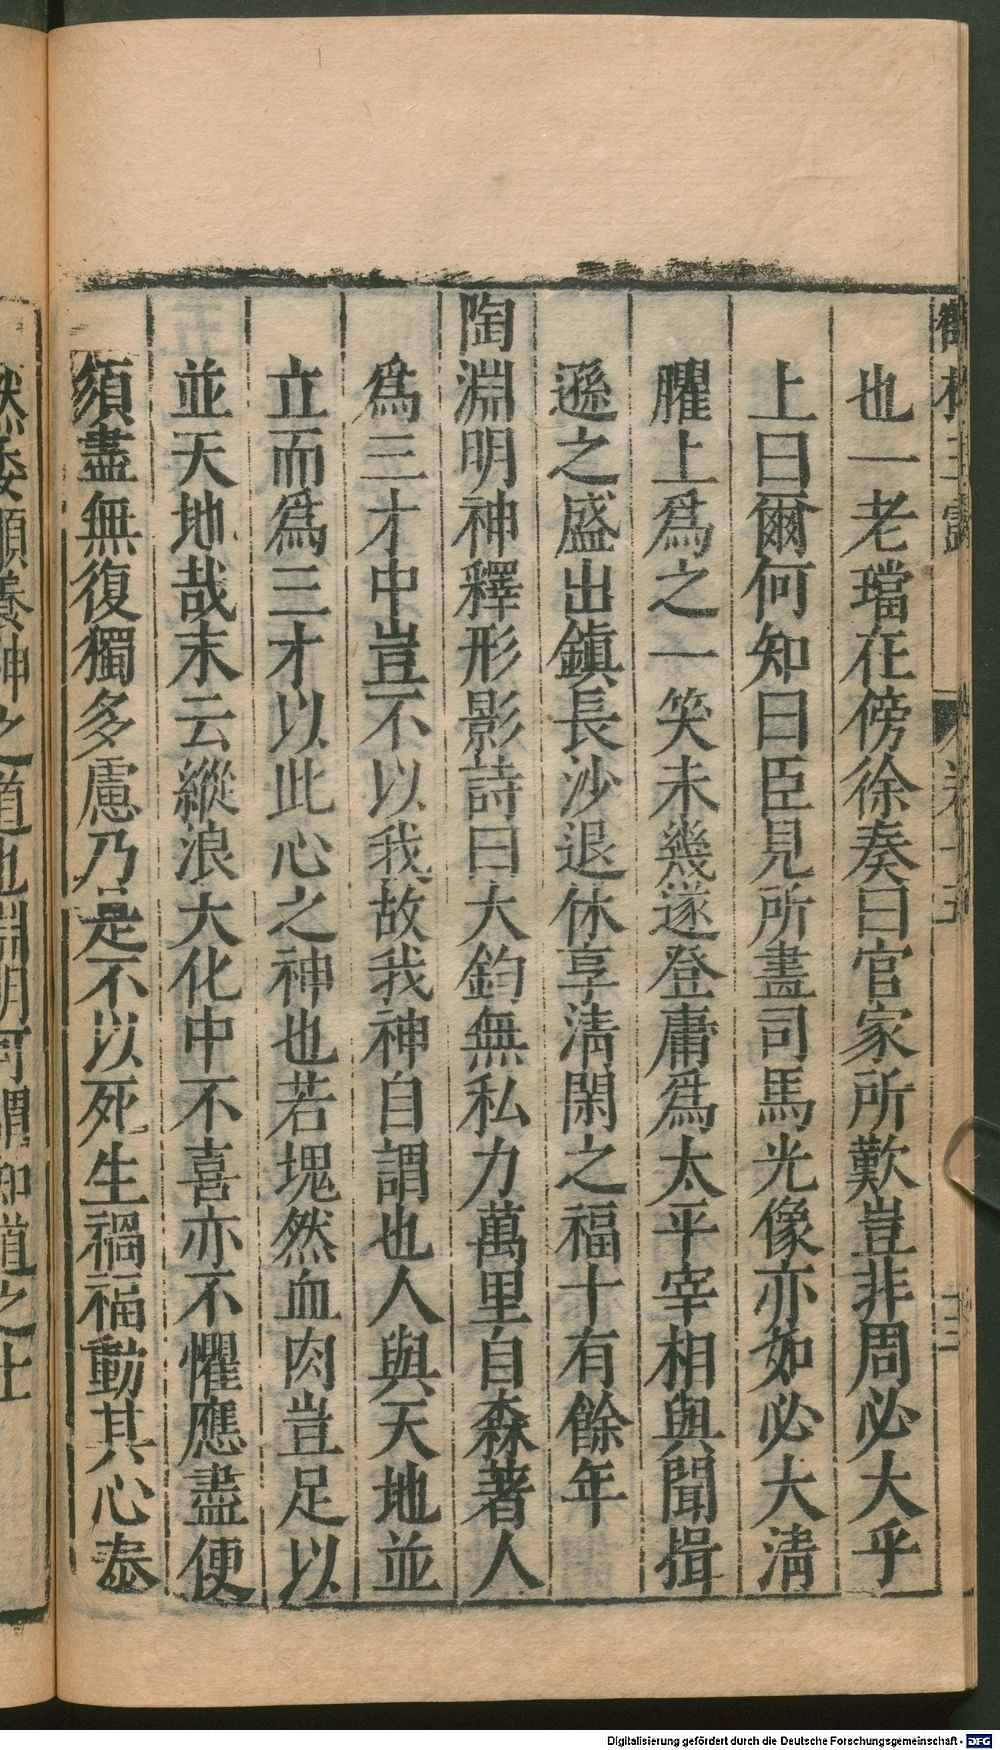 也一老璫在傍徐奏曰官家所歎豈非周必大乎
上曰爾何知曰臣見所畫司馬光像亦如必大清
臞上爲之一笑未幾遂登庸爲太平宰相與聞揖
遜之盛出鎮長沙退休享清閑之福十有餘年
陶淵明神釋形影詩曰大鈞無私力萬里自森著人
爲三才中豈不以我故我神自謂也人與天地並
立而爲三才以此心之神也若塊然血肉豈足以
並天地哉末云縱浪大化中不喜亦不懼應盡便
須盡無復獨多慮乃是不以死生禍福動其心泰
然委順養神之道也淵明可謂知道之士
Digitalisierung gefördert durch die Deutsche Forschungsgemeinschaft - DFG